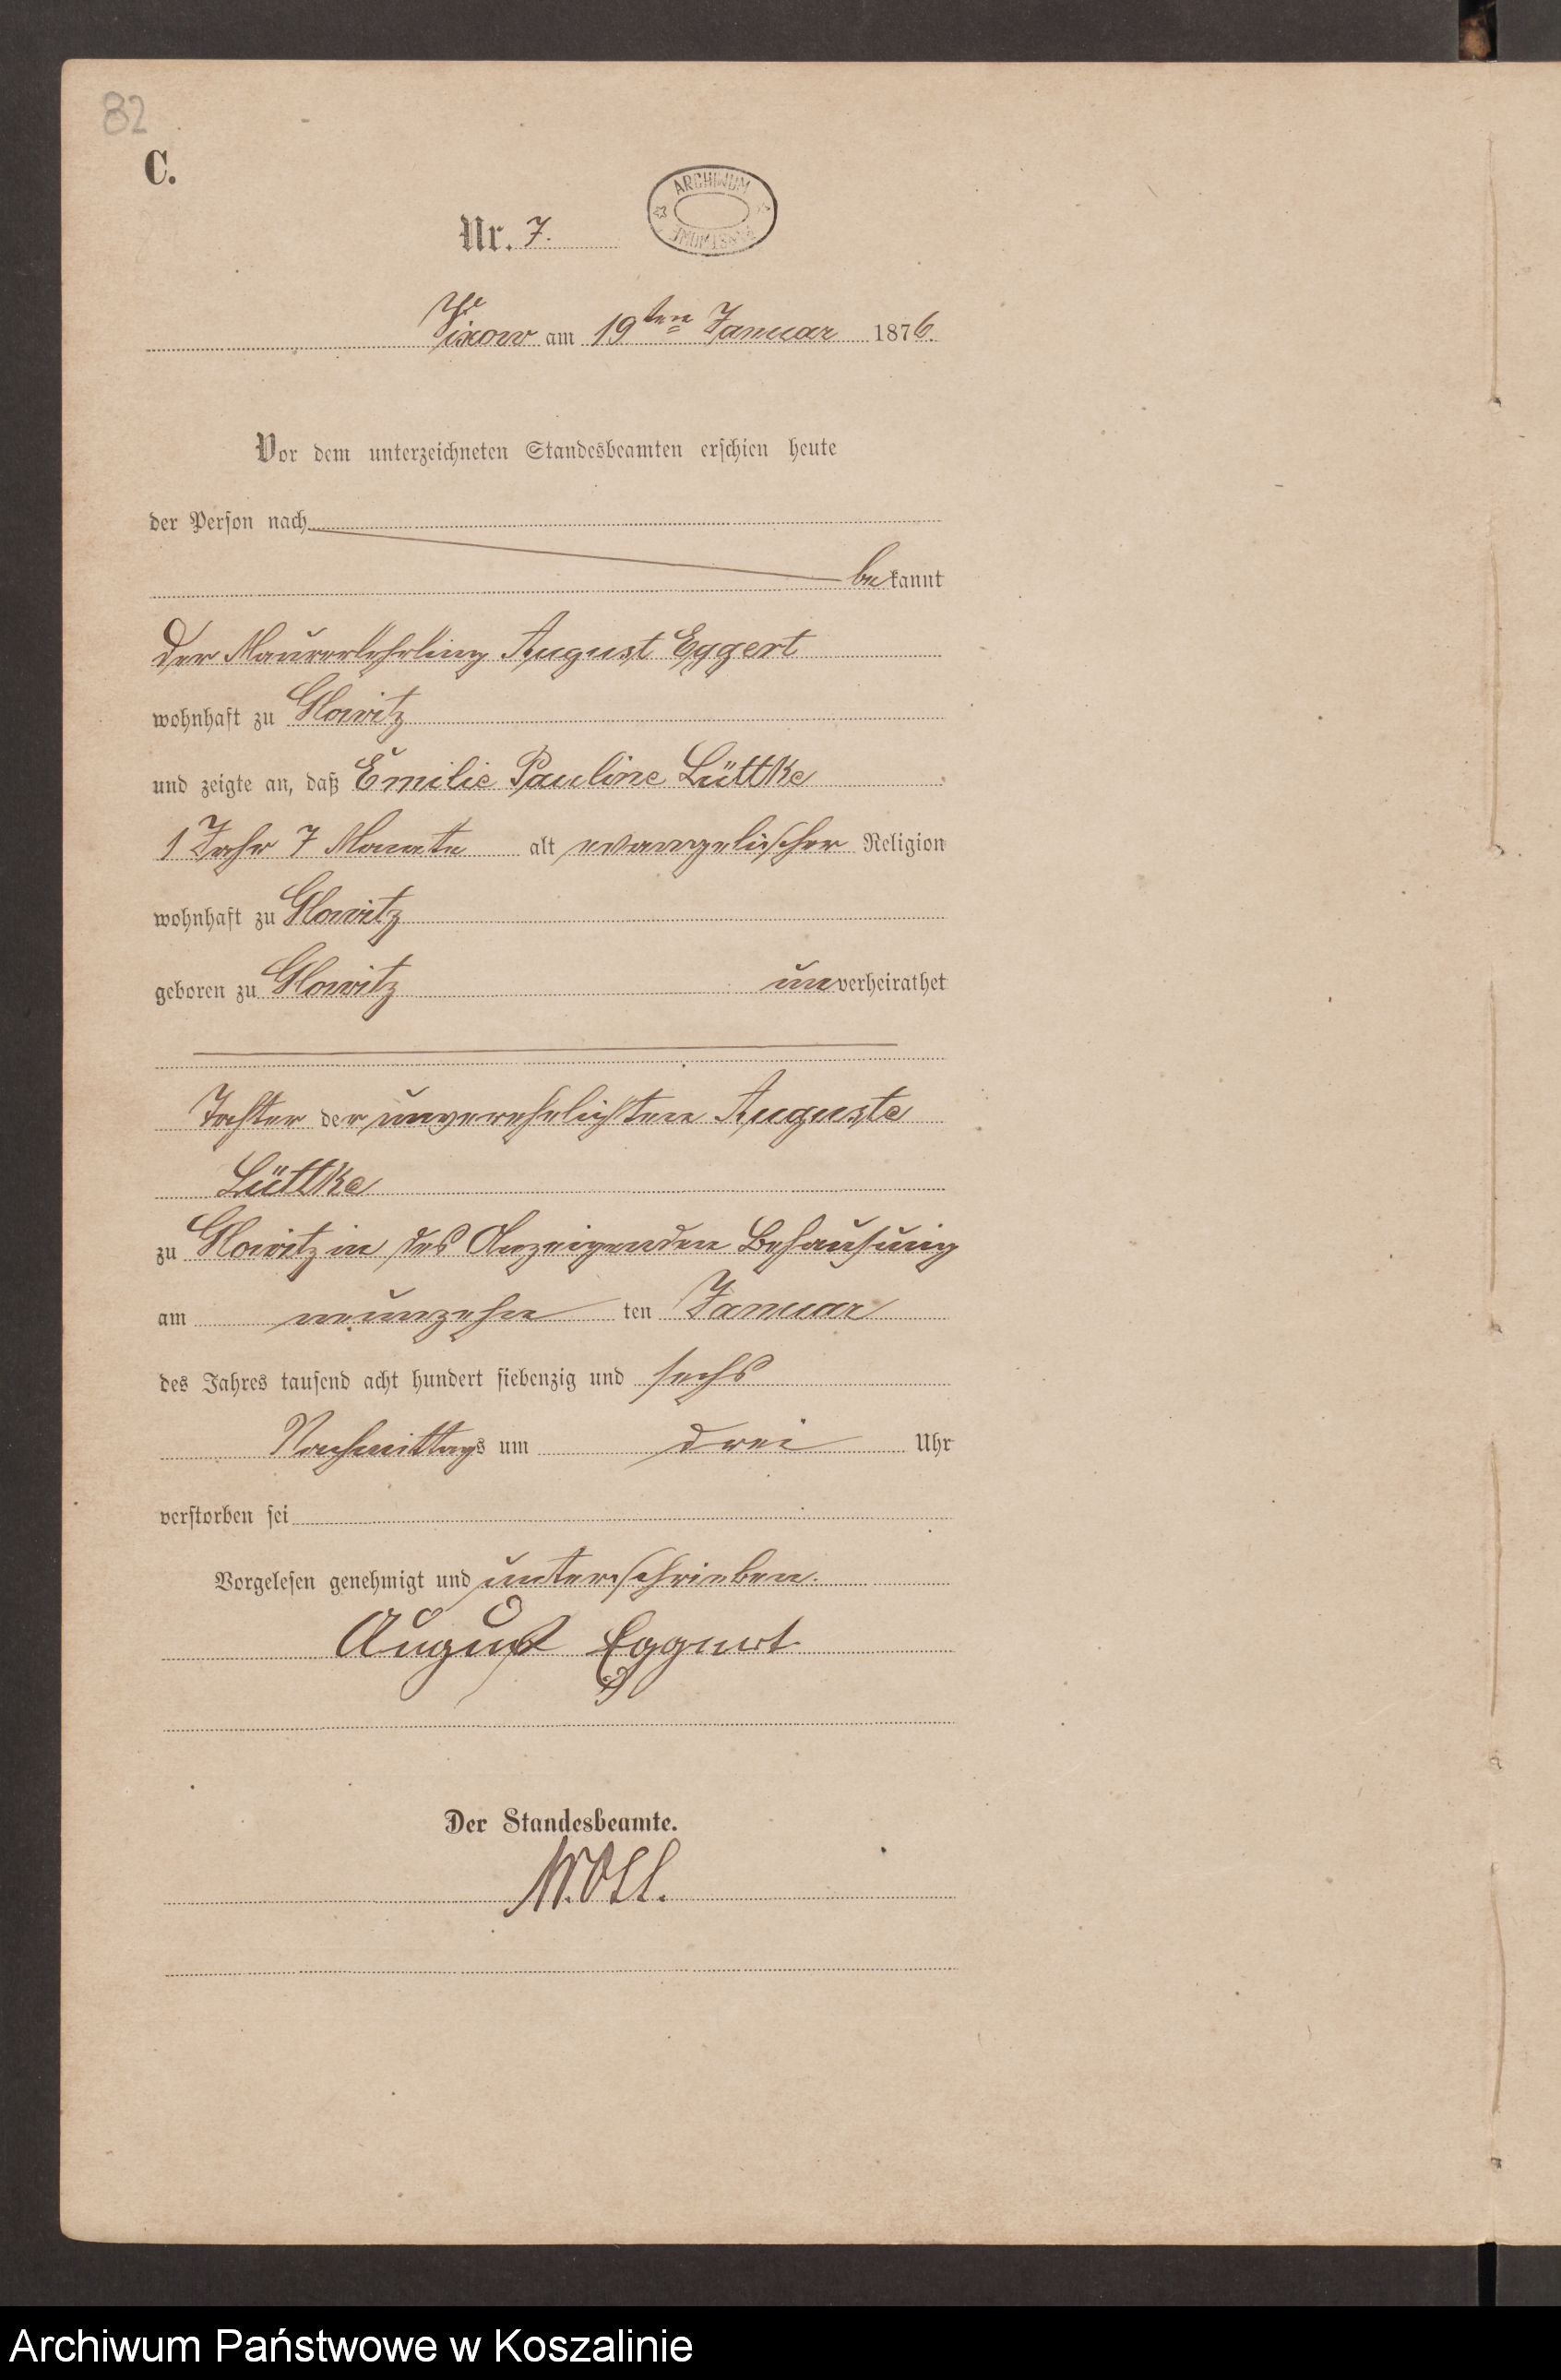 82
C.
ARCHIWUM
Nr. 7.
Vixow am 19ten Januar 1876.
Vor dem unterzeichneten Standesbeamten erschien heute
der Person nach
bekannt
der Maurerlehrling August Eggert
wohnhaft zu Glowitz
und zeigte an, daß Emilie Pauline Lüttke
1 Jahr 7 Monate alt evangelischer Religion
wohnhaft zu Glowitz
geboren zu Glowitz unverheirathet
Tochter der unverehelichten Auguste
Lüttke
zu Glowitz in des Anzeigenden Behausung
am neunzehn ten Januar
des Jahres tausend acht hundert siebenzig und sechs
Nachmittags um drei Uhr
verstorben sei
Vorgelesen genehmigt und unterschrieben.
August Eggert
Der Standesbeamte.
Archiwum Państwowe w Koszalinie